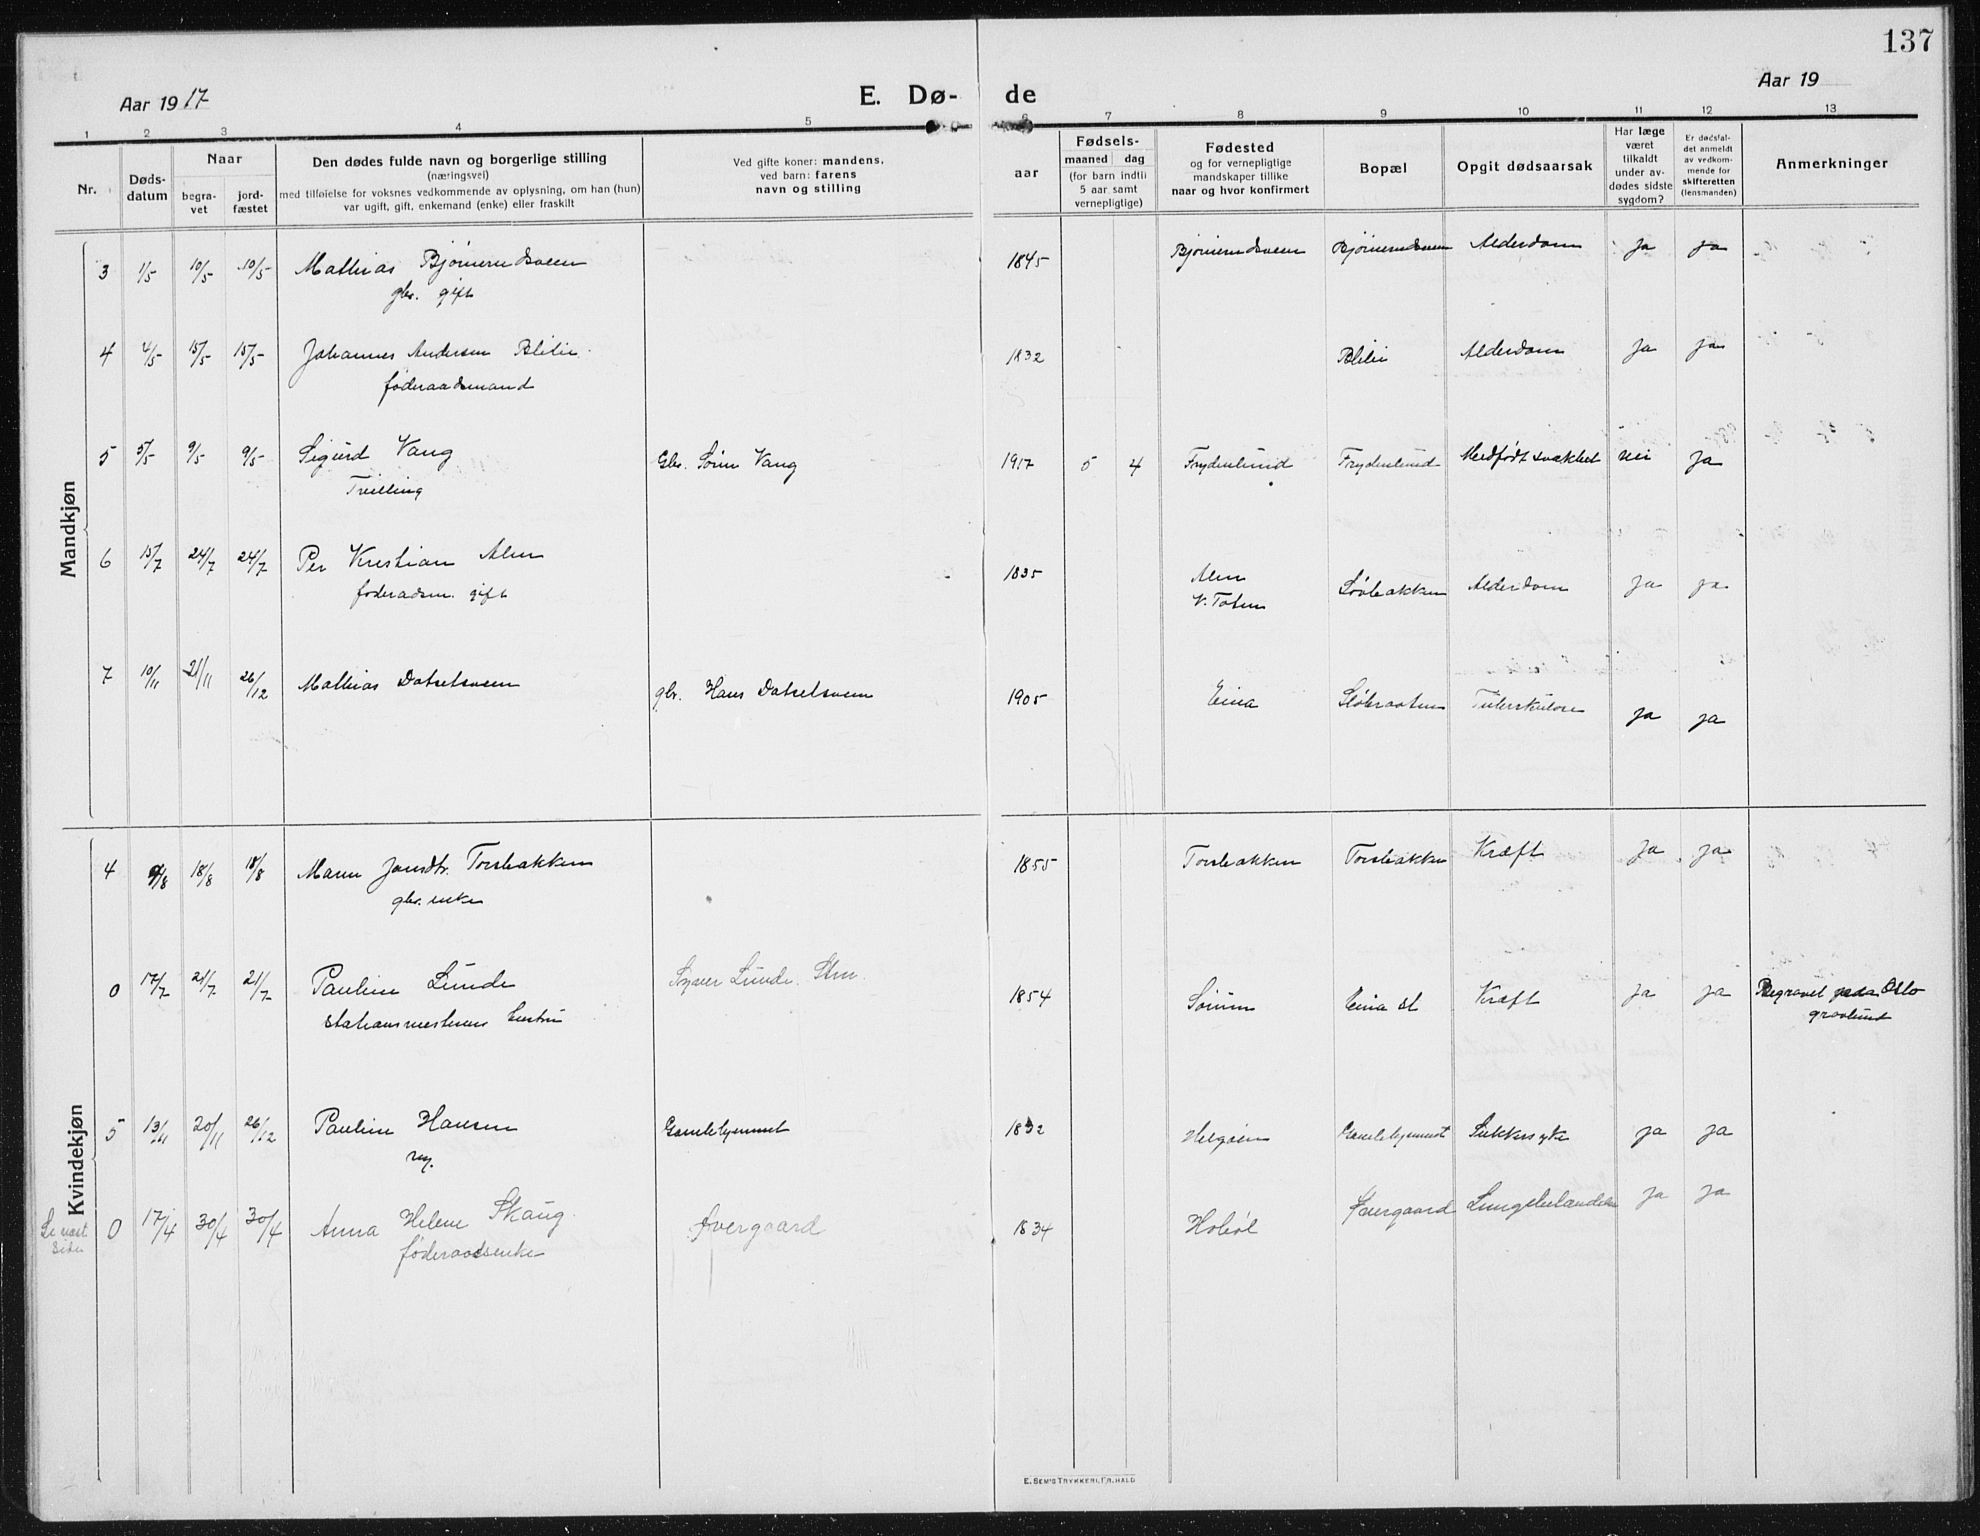 137
Aar 1917
E. Dø-
de
Aar 19
1 2 3 4 5 6 7 8 9 10 11 12 13
Nr.
Døds-
datum
Naar
begra-
vet
jord-
fæstet
Den dødes fulde navn og borgerlige stilling
(næringsvei)
med tilføielse for voksnes vedkommende av oplysning, om han (hun)
var ugift, gift, enkemand (enke) eller fraskilt
Ved gifte koner: mandens,
ved barn: farens
navn og stilling
aar
Fødsels-
maaned dag
(for barn indtil
5 aar samt
vernepligtige)
Fødested
og for vernepligtige
mandskaper tillike
naar og hvor konfirmert
Bopæl
Opgit dødsaarsak
Har læge
været
tilkaldt
under av-
dødes sidste
sygdom?
Er dødsfal-
det anmeldt
av vedkom-
mende for
skifteretten
(lensmanden)
Anmerkninger
Mandkjøn
3 1/5 10/5 10/5 Mathias Bjørnerudsveen 1845 Bjørnerudsveen Bjørnerudsveen Alderdom Ja Ja
gbr. gift
4 4/5 15/5 15/5 Johannes Andersen Blilie 1832 Blilie Alderdom Ja Ja
føderaadsmand
5 5/5 9/5 9/5 Sigurd Vang Gbr. Sørin Vang 1917 5 4 Frydenlund Frydenlund Medfødt svakhet nei Ja
Tvilling
6 15/7 24/7 24/7 Per Kristian Alm 1835 Alm Løvbakken Alderdom Ja Ja
føderadsm. gift V. Toten
7 10/11 21/11 26/12 Mathias Dotsetsveen gbr. Hans Dotsetsveen 1905 Eina Sløveraaten Tuberkulose Ja Ja
Kvindekjøn
4 9/8 18/8 18/8 Maren Jansdtr. Torsbakken 1855 Torsbakken Torsbakken Kræft Ja Ja
gbr. enke
0 17/7 21/7 21/7 Pauline Lunde Syver Lunde. Stm. 1854 Eina st Kræft Ja Ja Begravet paa Oslo
stationsmesterens hustru gravlund
5 13/11 20/11 26/12 Pauline Hansen Gamlehjemmet 1832 Helgøen Gamlehjemmet Sukkersyke Ja Ja
ug.
Se næst
side
0 17/4 30/4 30/4 Anna Helene Skaug Øvergaard 1834 Hobøl Øvergaard Lungebetændelse Ja Ja
føderaadsenke
E. SEM'S TRYKKERI, FR.HALD